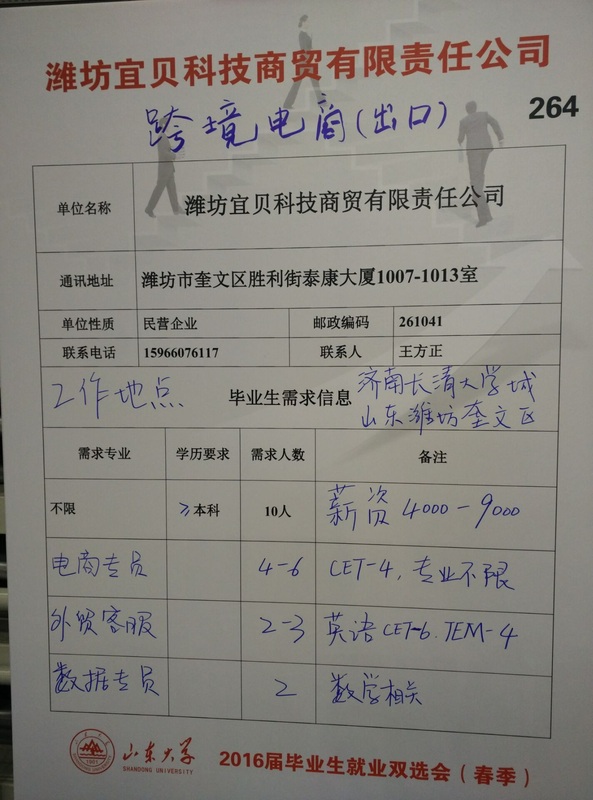 潍坊宜贝科技商贸有限责任公司
跨境电商(出口)
264
单位名称 潍坊宜贝科技商贸有限责任公司
通讯地址 潍坊市奎文区胜利街泰康大厦1007-1013室
单位性质 民营企业 邮政编码 261041
联系电话 15966076117 联系人 王方正
工作地点 毕业生需求信息 济南长清大学城
山东潍坊奎文区
需求专业 学历要求 需求人数 备注
不限 ≥本科 10人 薪资 4000-9000
电商专员 4-6 CET-4, 专业不限
外贸客服 2-3 英语 CET-6. TEM-4
数据专员 2 数学相关
山东大学
SHANDONG UNIVERSITY
2016届毕业生就业双选会（春季）